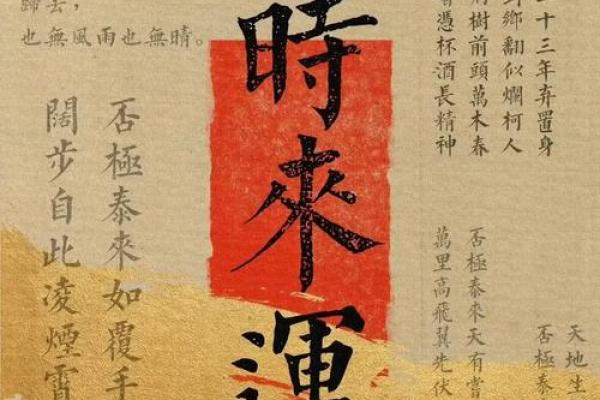 歸去，
也無風雨也無晴。
時來運
二十三年弃置身
鄉翻似爛柯人
樹前頭萬木春
憑杯酒長精神
否極泰來如覆手
闊步自此凌煙霄
天地生
否極泰
否極泰來天有嘗
萬里高飛翼先伏